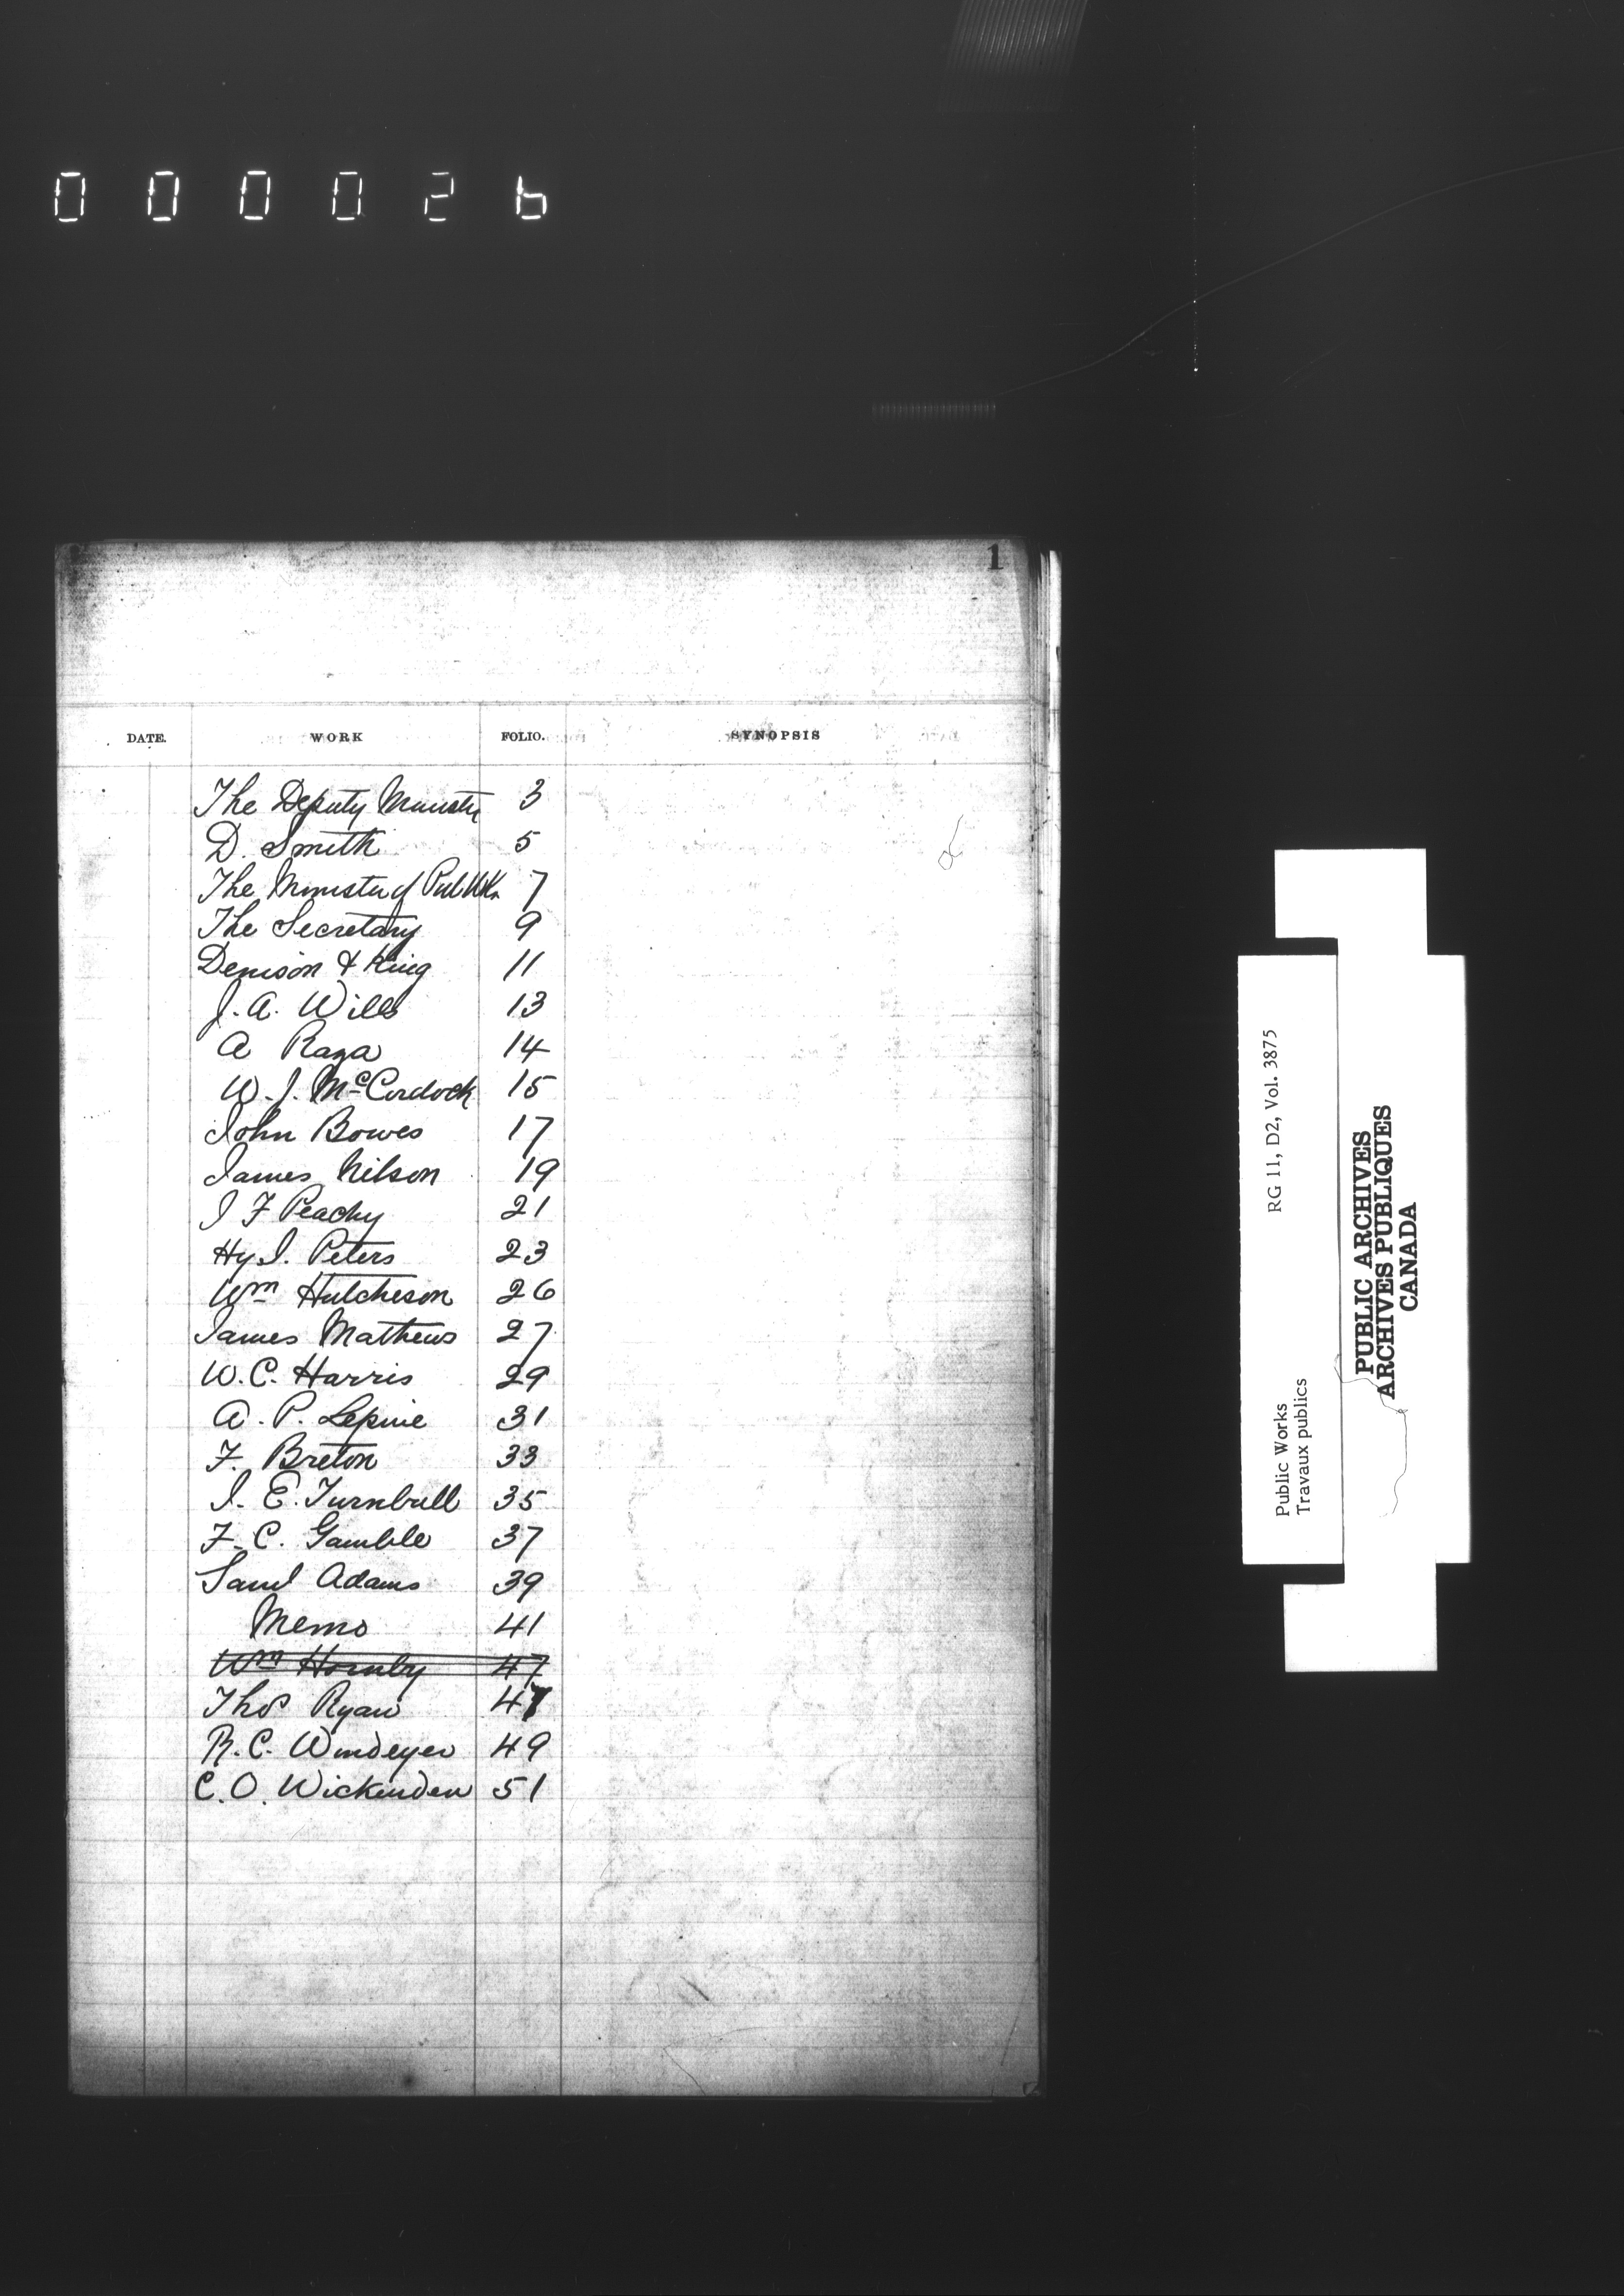 000026
1
DATE. WORK FOLIO. SYNOPSIS
The Deputy Minister 3
D. Smith 5
The Minister of Pub Wks. 7
The Secretary 9
Denison & King 11
J. A. Wills 13
A Raza 14
W. J. McCordock 15
John Bowes 17
James Nelson 19
J F Peachy 21
Hy J. Peters 23
Wm Hutcheson 26
James Mathews 27
W. C. Harris 29
A. P. Lepine 31
F. Breton 33
J. E. Turnbull 35
F. C. Gamble 37
Saml Adams 39
Memo 41
Wm Hornby 47
Thos Ryan 47
R. C. Windeyer 49
C. O. Wickenden 51
Public Works
Travaux publics
RG 11, D2, Vol. 3875
PUBLIC ARCHIVES
ARCHIVES PUBLIQUES
CANADA